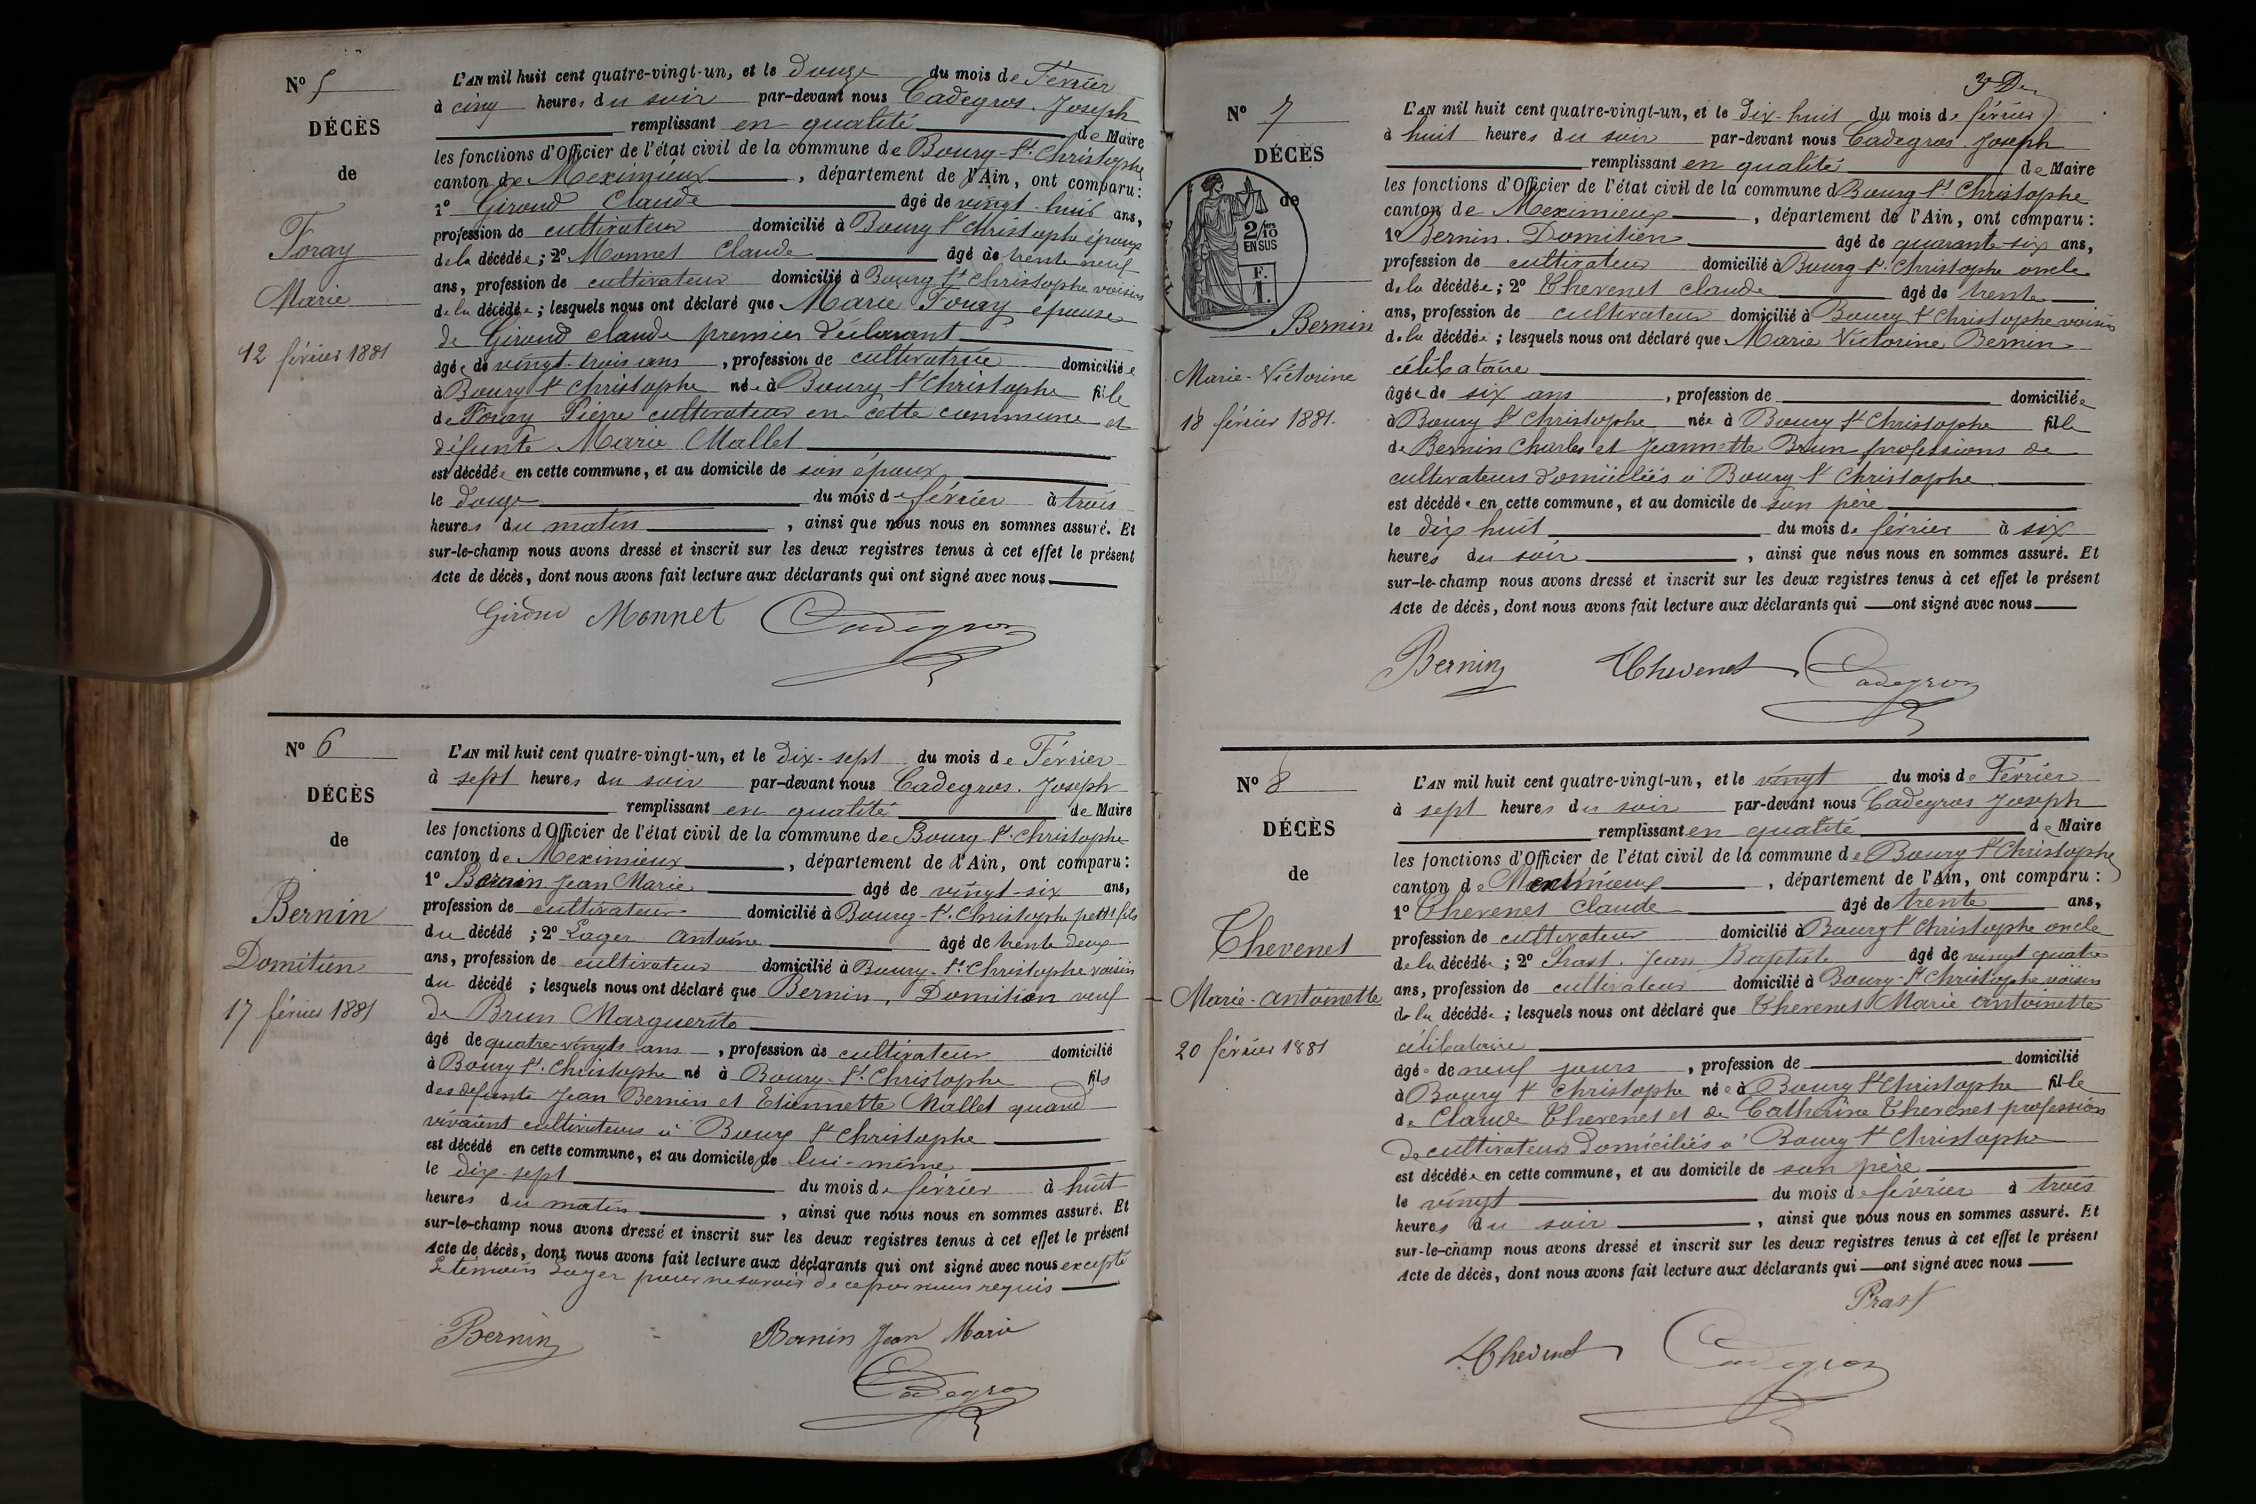 Nº 5
DÉCÈS
de
Foray
Marie
12 février 1881
L'AN mil huit cent quatre-vingt-un, et le douze du mois de Février
à cinq heures du soir par-devant nous Cadegros. Joseph
remplissant en qualité de Maire
les fonctions d'Officier de l'état civil de la commune de Bourg-St. Christophe
canton de Meximieux, département de l'Ain, ont comparu :
1º Giroud Claude âgé de vingt-huit ans,
profession de cultivateur domicilié à Bourg St Christophe époux
de la décédée ; 2º Monnet Claude âgé de trente neuf
ans, profession de cultivateur domicilié à Bourg St Christophe voisin
de la décédée ; lesquels nous ont déclaré que Marie Foray épouse
de Giroud claude premier déclarant
âgée de vingt-trois ans, profession de cultivatrice domiciliée
à Bourg St Christophe née à Bourg-St Christophe fille
de Foray Pierre cultivateur en cette commune et
défunte Marie Mallet
est décédée en cette commune, et au domicile de son époux
le douze du mois de février à trois
heures du matin, ainsi que nous nous en sommes assuré. Et
sur-le-champ nous avons dressé et inscrit sur les deux registres tenus à cet effet le présent
Acte de décès, dont nous avons fait lecture aux déclarants qui ont signé avec nous
Giroud Monnet Cadegros
Nº 6
DÉCÈS
de
Bernin
Domitien
17 février 1881
L'AN mil huit cent quatre-vingt-un, et le Dix-sept du mois de Février
à sept heures du soir par-devant nous Cadegros. Joseph
remplissant en qualité de Maire
les fonctions d'Officier de l'état civil de la commune de Bourg St. Christophe
canton de Meximieux, département de l'Ain, ont comparu :
1º Bernin Jean Marie âgé de vingt-six ans,
profession de cultivateur domicilié à Bourg-St. Christophe petit fils
du décédé ; 2º Lager Antoine âgé de trente deux
ans, profession de cultivateur domicilié à Bourg-St. Christophe voisin
du décédé ; lesquels nous ont déclaré que Bernin, Domitien veuf
de Brun Marguerite
âgé de quatre-vingts ans, profession de cultivateur domicilié
à Bourg St. Christophe né à Bourg-St. Christophe fils
des défunts Jean Bernin et Etiennette Mallet quand
vivaient cultivateurs à Bourg St Christophe
est décédé en cette commune, et au domicile de lui-même
le dix-sept du mois de février à huit
heures du matin, ainsi que nous nous en sommes assuré. Et
sur-le-champ nous avons dressé et inscrit sur les deux registres tenus à cet effet le présent
Acte de décès, dont nous avons fait lecture aux déclarants qui ont signé avec nous excepté
le témoin Lager pour ne savoir de ce par nous requis
Bernin Bernin Jean Marie
Cadegros
Nº 7
DÉCÈS
de
2/10
EN SUS
F.
1.
Bernin
Marie-Victorine
18 février 1881.
L'AN mil huit cent quatre-vingt-un, et le Dix-huit du mois de février
à huit heures du soir par-devant nous Cadegros Joseph
remplissant en qualité de Maire
les fonctions d'Officier de l'état civil de la commune d Bourg-St Christophe
canton de Meximieux, département de l'Ain, ont comparu :
1º Bernin. Domitien âgé de quarante-six ans,
profession de cultivateur domicilié à Bourg St. Christophe oncle
de la décédée ; 2º Thevenet claude âgé de trente
ans, profession de cultivateur domicilié à Bourg St Christophe voisin
de la décédée ; lesquels nous ont déclaré que Marie Victorine Bernin
célibataire
âgée de six ans, profession de domiciliée
à Bourg St Christophe née à Bourg St Christophe fille
de Bernin Charles et Jeannette Brun professions de
cultivateurs domiciliés à Bourg St Christophe
est décédée en cette commune, et au domicile de son père
le dix huit du mois de février à six
heures du soir, ainsi que nous nous en sommes assuré. Et
sur-le-champ nous avons dressé et inscrit sur les deux registres tenus à cet effet le présent
Acte de décès, dont nous avons fait lecture aux déclarants qui ont signé avec nous
Bernin Thevenet Cadegros
Nº 8
DÉCÈS
de
Thevenet
Marie-Antoinette
20 février 1881
L'AN mil huit cent quatre-vingt-un, et le vingt du mois de Février
à sept heures du soir par-devant nous Cadegros Joseph
remplissant en qualité de Maire
les fonctions d'Officier de l'état civil de la commune de Bourg St Christophe
canton de Meximieux, département de l'Ain, ont comparu :
1º Thevenet Claude âgé de trente ans,
profession de cultivateur domicilié à Bourg St Christophe oncle
de la décédée ; 2º Prast. Jean Baptiste âgé de vingt quatre
ans, profession de cultivateur domicilié à Bourg-St Christophe voisin
de la décédée ; lesquels nous ont déclaré que Thevenet Marie Antoinette
célibataire
âgée de neuf jours, profession de domicilié
à Bourg St Christophe née à Bourg St Christophe fille
de Claude Thevenet et de Catherine Thevenet profession
de cultivateurs domiciliés à Bourg St Christophe
est décédée en cette commune, et au domicile de son père
le vingt du mois de février à trois
heures du soir, ainsi que nous nous en sommes assuré. Et
sur-le-champ nous avons dressé et inscrit sur les deux registres tenus à cet effet le présent
Acte de décès, dont nous avons fait lecture aux déclarants qui ont signé avec nous
Prast
Thevenet Cadegros